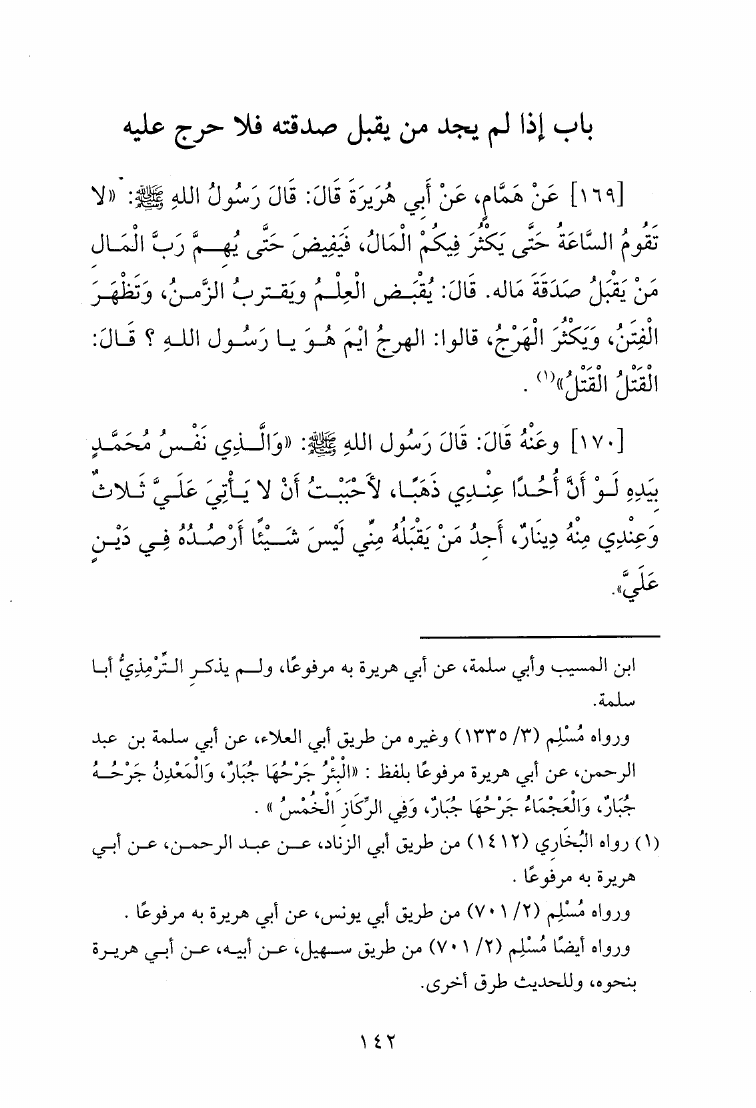 باب إذا لم يجد من يقبل صدقته فلا حرج عليه
[١٦٩] عَنْ هَمَّامٍ، عَنْ أَبِي هُرَيْرَةَ قَالَ: قَالَ رَسُولُ اللهِ ﷺ: «لا
تَقُومُ السَّاعَةُ حَتَّى يَكْثُرَ فِيكُمْ الْمَالُ، فَيَفِيضَ حَتَّى يُهِمَّ رَبَّ الْمَالِ
مَنْ يَقْبَلُ صَدَقَةَ مَاله. قَالَ: يُقْبَض الْعِلْمُ ويَقْتربُ الزَّمنُ، وَتَظْهَرَ
الْفِتَنُ، وَيَكْثُرَ الْهَرْجُ، قالوا: الهرجُ ايْمَ هُوَ يا رَسُول اللهِ ؟ قَالَ:
الْقَتْلُ الْقَتْلُ»(١) .
[١٧٠] وعَنْهُ قَالَ: قَالَ رَسُول اللهِ ﷺ: «وَالَّذِي نَفْسُ مُحَمَّدٍ
بِيَدِهِ لَوْ أَنَّ أُحُدًا عِنْدِي ذَهَبًا، لأَحْبَبْتُ أَنْ لا يَأْتِيَ عَلَيَّ ثَلاثٌ
وَعِنْدِي مِنْهُ دِينَارٌ، أَجِدُ مَنْ يَقْبَلُهُ مِنِّي لَيْسَ شَيْئًا أَرْصُدُهُ فِي دَيْنٍ
عَلَيَّ».
ابن المسيب وأبي سلمة، عن أبي هريرة به مرفوعًا، ولم يذكر التِّرْمِذيُّ أبا
سلمة.
ورواه مُسْلِم (٣/ ١٣٣٥) وغيره من طريق أبي العلاء، عن أبي سلمة بن عبد
الرحمن، عن أبي هريرة مرفوعًا بلفظ : «الْبِئْرُ جَرْحُهَا جُبَارٌ، وَالْمَعْدِنُ جَرْحُهُ
جُبَارٌ، وَالْعَجْمَاءُ جَرْحُهَا جُبَارٌ، وَفِي الرِّكَازِ الْخُمْسُ » .
(١) رواه الْبُخَارِي (١٤١٢) من طريق أبي الزناد، عن عبد الرحمن، عن أبي
هريرة به مرفوعًا .
ورواه مُسْلِم (٢/ ٧٠١) من طريق أبي يونس، عن أبي هريرة به مرفوعًا .
ورواه أيضًا مُسْلِم (٢/ ٧٠١) من طريق سهيل، عن أبيه، عن أبي هريرة
بنحوه، وللحديث طرق أخرى.
١٤٢